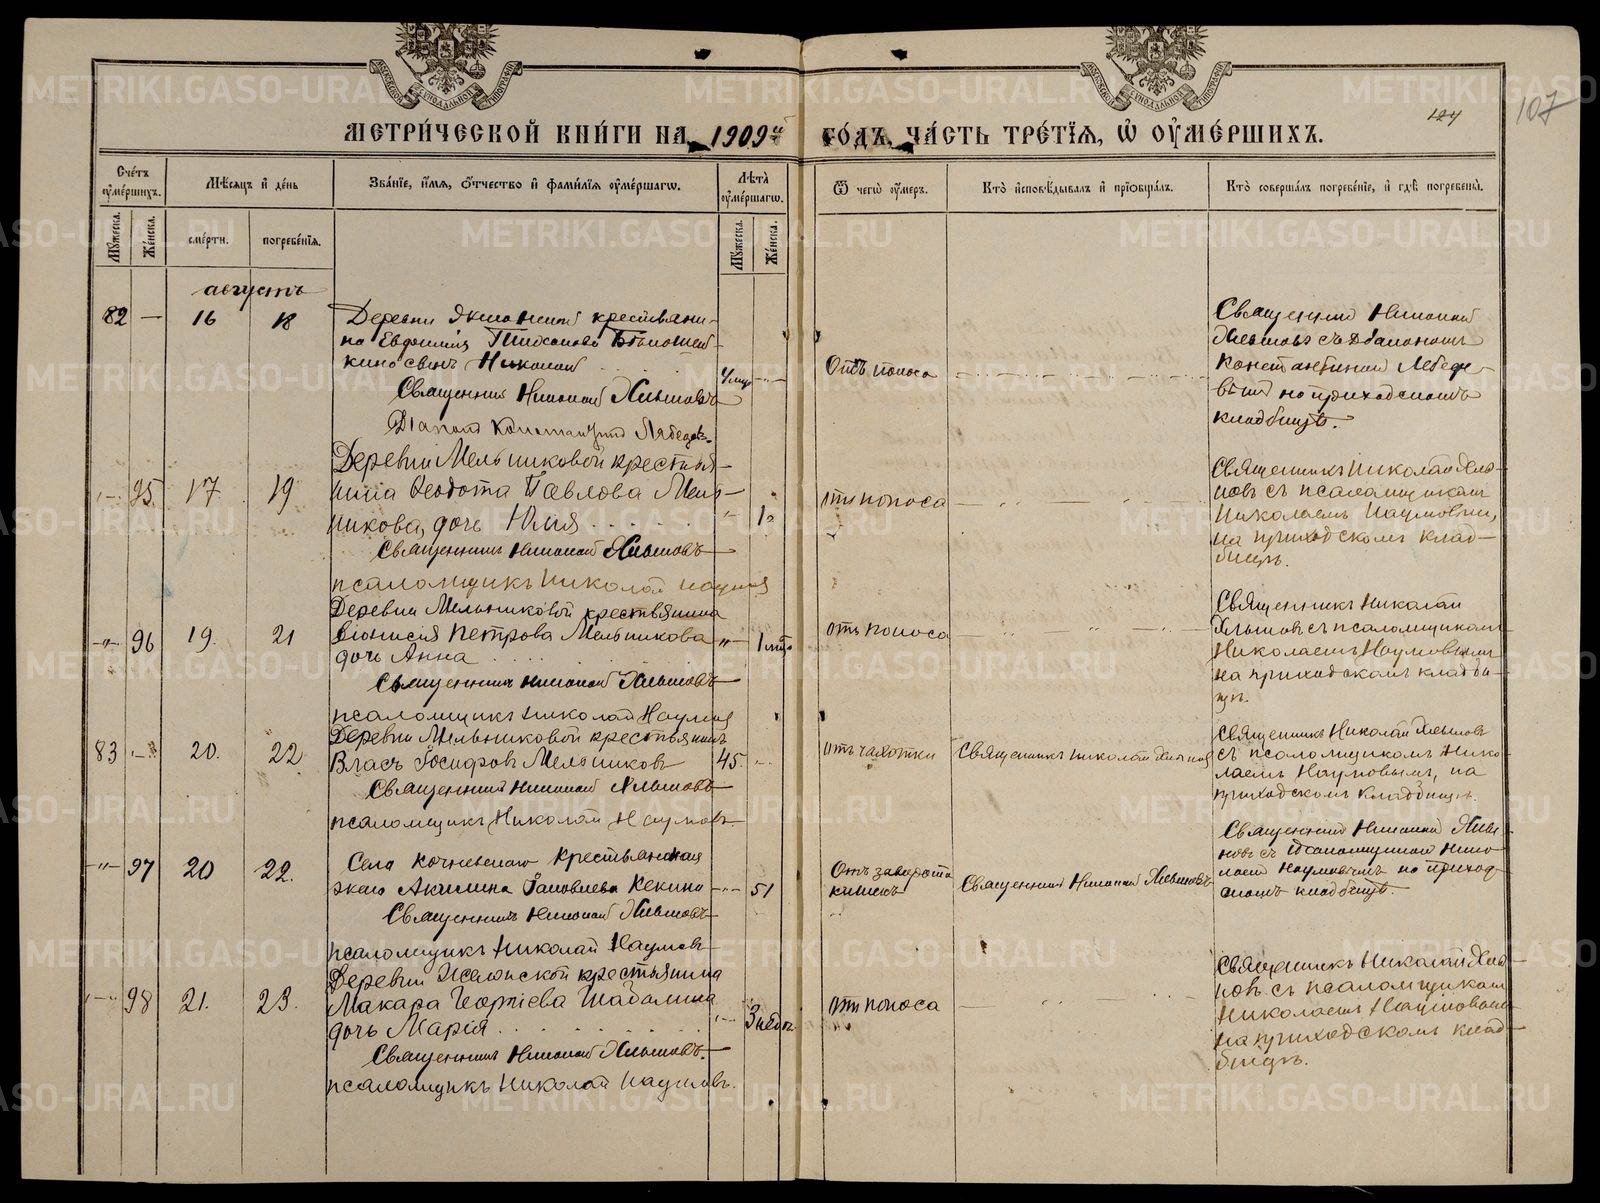 МЕТРИ́ЧЕСКОЙ КНИ́ГИ НА 1909й ГО́ДЪ, ЧА́СТЬ ТРЕ́ТІЯ, Ѡ ОУ҆МЕ́РШИХЪ.
124
107
Сче́тъ оу҆ме́ршихъ.
Мѣ́сяцъ и҆ де́нь
Зва́ніе, и҆́мя, о҆́тчество и҆ фами́лія оу҆ме́ршагѡ.
Лѣ́та оу҆ме́ршагѡ.
Ѿ чегѡ̀ оу҆́меръ.
Кто̀ и҆сповѣ́дывалъ и҆ прїѡбща́лъ.
Кто̀ соверша́лъ погребе́ніе, и҆ гдѣ̀ погребены̀.
Му́жеска.
Же́нска.
сме́рти.
погребе́нія.
Му́жеска.
Же́нска.
августъ
82 — 16 18
Деревни крестьяни-
на
сынъ Николай
Священникъ Николай Хлыновъ
Діаконъ Константинъ Лебедевъ.
Отъ поноса
Священникъ Николай
Хлыновъ съ діакономъ
Константиномъ Лебеде-
вымъ на приходскомъ
кладбищѣ.
95. 17 19
Деревни Мельниковой крестья-
нина Ѳеодота Павлова Мель-
никова, дочь Юлія
1 г.
Священникъ Николай Хлыновъ
псаломщикъ Николай Наумовъ
отъ поноса
Священникъ Николай Хлы-
новъ съ псаломщикомъ
Николаемъ Наумовымъ,
на приходскомъ клад-
бищѣ.
-"- 96 19. 21
Деревни Мельниковой крестьянина
Діонисія Петрова Мельникова -"-
дочь Анна
Священникъ Николай Хлыновъ
псаломщикъ Николай Наумовъ
отъ поноса
Священникъ Николай
Хлыновъ съ псаломщикомъ
Николаемъ Наумовымъ
на приходскомъ кладби-
щѣ.
83 -"- 20. 22
Деревни Мельниковой крестьянинъ
Власъ Іосифовъ Мельниковъ 45.
Священникъ Николай Хлыновъ
псаломщикъ Николай Наумовъ.
отъ чахотки
Священникъ Николай Хлыновъ
Священникъ Николай Хлыновъ
съ псаломщикомъ Нико-
лаемъ Наумовымъ, на
приходскомъ кладбищѣ.
-"- 97 20 22.
Села Кочневскаго крестьянская
жена Акилина Іаковлева Кекина -"- 51
Священникъ Николай Хлыновъ
псаломщикъ Николай Наумовъ
Отъ заворота
кишекъ
Священникъ Николай Хлыновъ
Священникъ Николай Хлы-
новъ съ псаломщикомъ Нико-
лаемъ Наумовымъ на приход-
скомъ кладбищѣ.
-"- 98 21. 23.
Деревни крестьянина
Макара Георгіева Шабалина
дочь Марія
3 нед.
Священникъ Николай Хлыновъ.
псаломщикъ Николай Наумовъ.
отъ поноса
Священникъ Николай Хлы-
новъ съ псаломщикомъ
Николаемъ Наумовымъ
на приходскомъ клад-
бищѣ.
METRIKI.GASO-URAL.RU